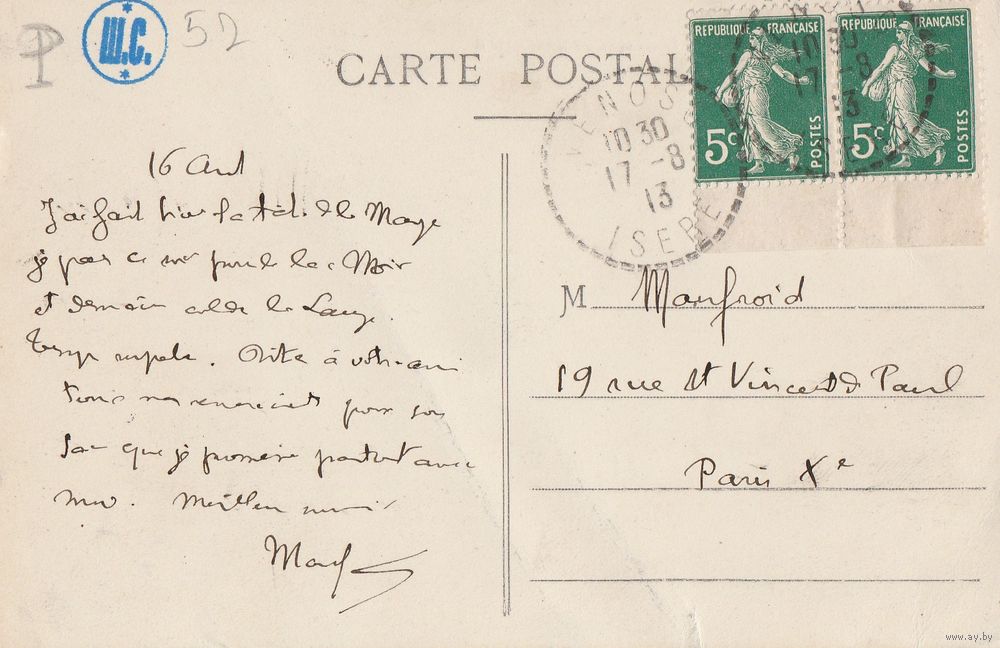 Ш.С.
52
CARTE POSTALE
REPUBLIQUE FRANÇAISE
5c POSTES
REPUBLIQUE FRANÇAISE
5c POSTES
VENOSC
10 30
17 - 8
13
ISERE
10 30
17 - 8
13
16 Août
J'ai fait hier la tête de la Maye
je pars ce soir pour la
et demain col de la Lauze.
Temps superbe. Dites à votre ami
tous mes remerciements pour son
sac que je promène partout avec
moi. Meilleurs
M Manfroid
19 rue St Vincent de Paul
Paris Xe
www.ay.by